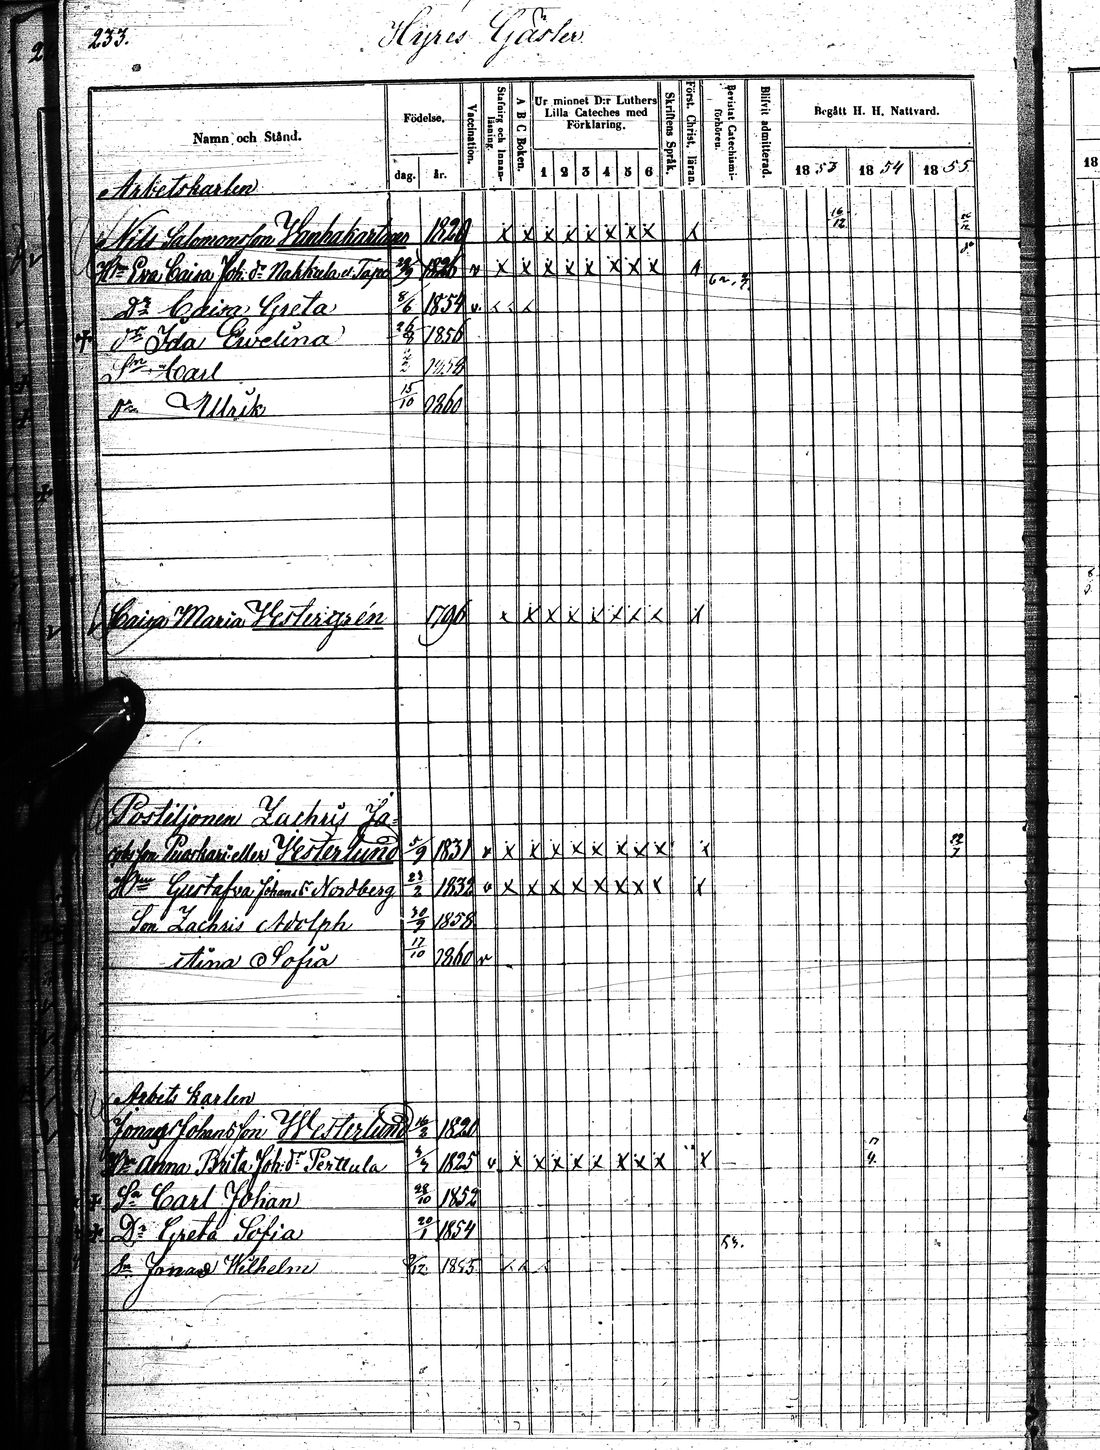 233.
Hyres Gäster
Namn och Stånd. Födelse. Vaccination. Stafning och Innanläsning. A B C Boken. Ur minnet D:r Luthers Lilla Cateches med Förklaring. Skriftens Språk. Först. Christ. läran. Bevistat Catechismiförhören. Blifvit admitterad. Begått H. H. Nattvard.
dag. år. 1 2 3 4 5 6 1853 1854 1855.
Arbetskarlen
Nils Salomonsson Wanhakartano 1820 x x x x x x x x x 16/12
H:u Eva Caisa Joh. d:r Nahkula 1826 v x x x x x x x x
D:r Caisa Greta 8/6 1854 v.
d:r Ida Evelina 1856
S:n Carl 1858
Ullrik 15/10 1860
Caisa Maria Westergrén 1796 x x x x x x x x x
Postiljonen Zachris Ja-
eller Westerlund 5/9 1831 v x x x x x x x x x 22/7
Gustafva Johans d:r Nordberg 23/2 1832 v x x x x x x x x x
Son Zachris Adolph 30/9 1858
Aina Sofia 17/10 1860 v
Arbets karlen
Jonas Johansson Westerlund 1820
Anna Brita Joh. d:r Perttula 1825 v x x x x x x x x x
S:n Carl Johan 28/10 1852
D:r Greta Sofia 20/1 1854
S:n Jonas Wilhelm 1855